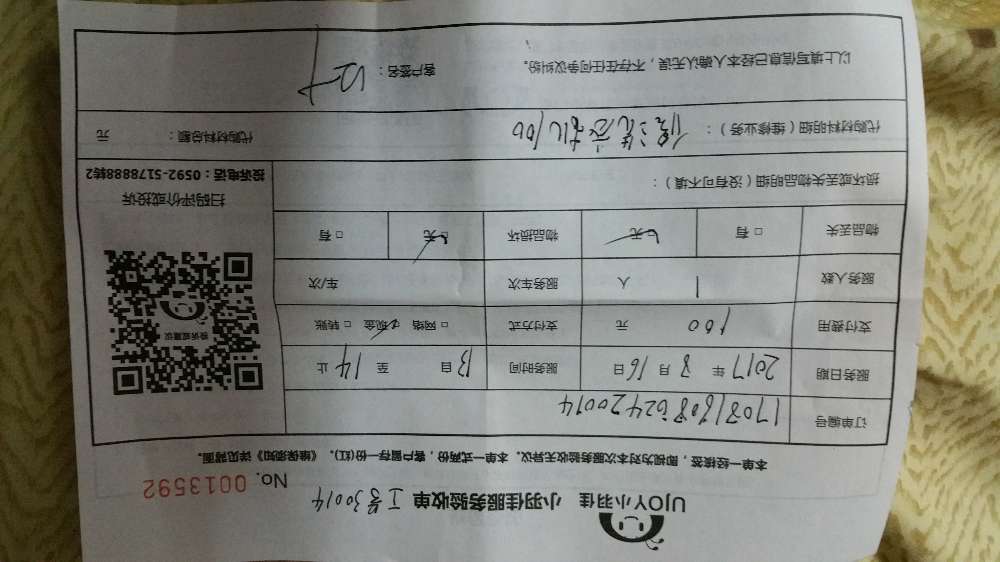 UJOY小羽佳 小羽佳服务验收单 工号30014
No. 0013592
本单一经续签，即视为对本次服务验收无异议。本单一式两份，客户留存一份(红)。《维保须知》详见背面。
订单编号 170816086242 0014
服务日期 2017 年 8 月 16 日 服务时间 13 自 至 14 止
支付费用 100 元 支付方式 □ 网络 □ 现金 □ 转账
服务人数 1 人 服务车次 车/次
物品丢失 □ 有 □ 无 物品损坏 □ 无 □ 有
损坏或丢失物品明细（没有可不填）：
投诉或建议
扫码评价或投诉
投诉电话：0592-5178888转2
代购材料明细（维修业务）： 洗衣机100 代购材料总额： 元
以上填写信息已经本人确认无误，不存在任何争议纠纷。
客户签名：